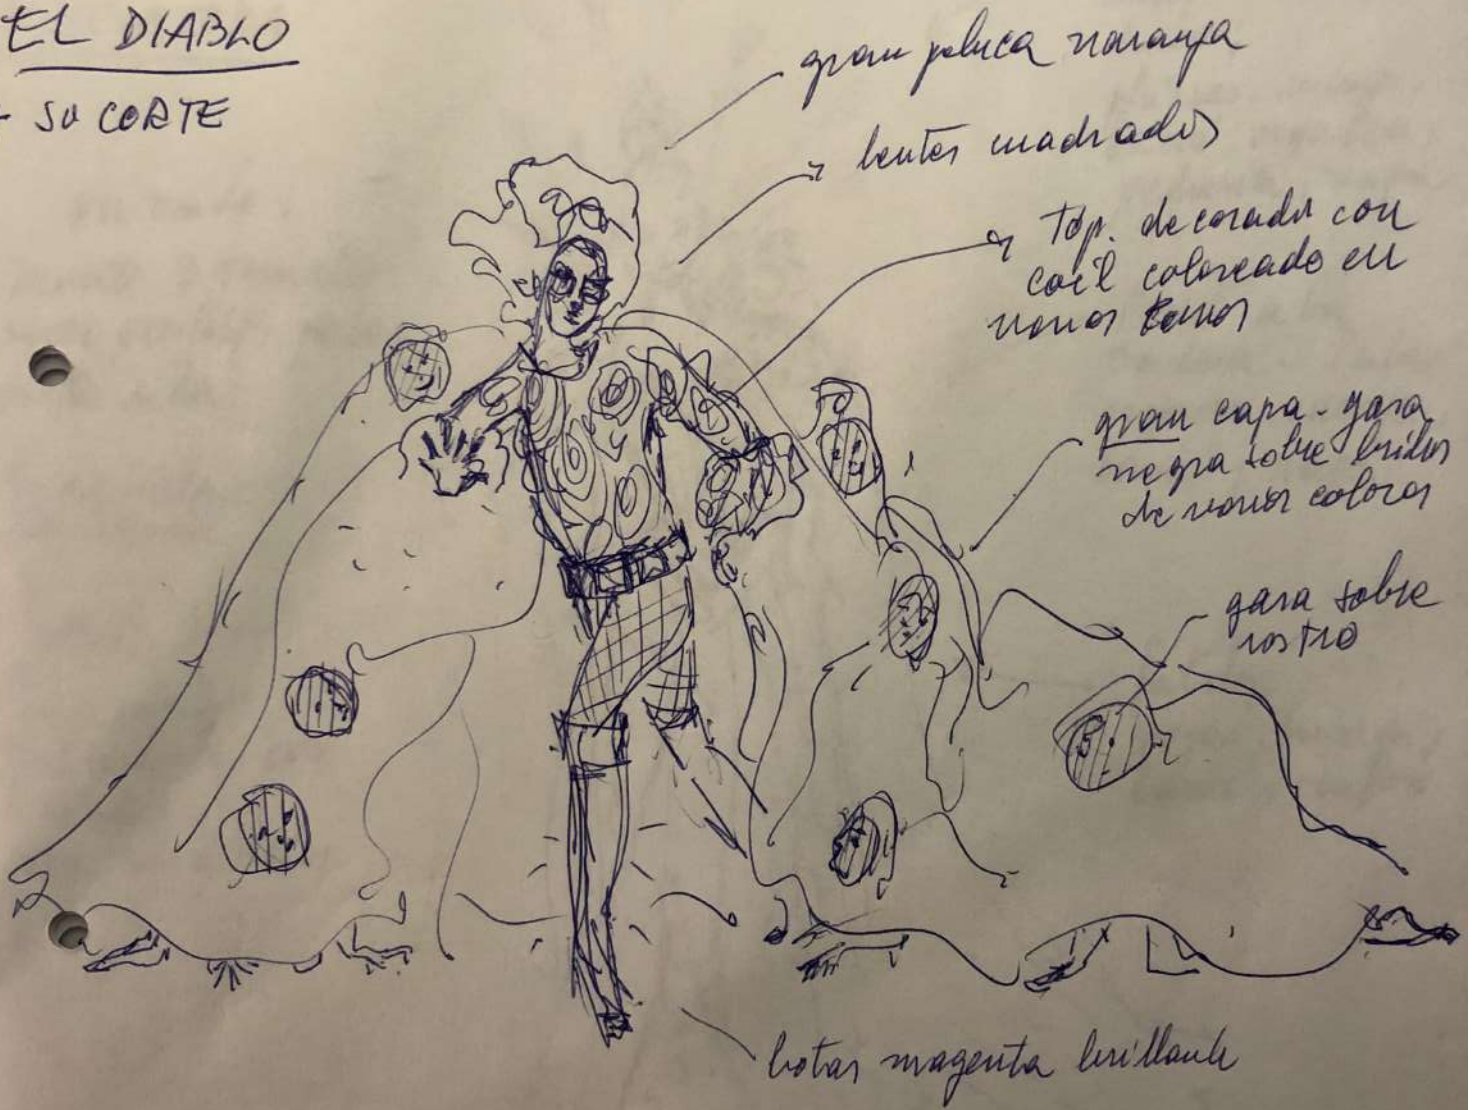 EL DIABLO
+ SU CORTE
gran peluca naranja
lentes cuadrados
Top. decorado con
coil coloreado en
varios tonos
gran capa - gasa
negra sobre brillos
de varios colores
gasa sobre
rostro
botas magenta brillante